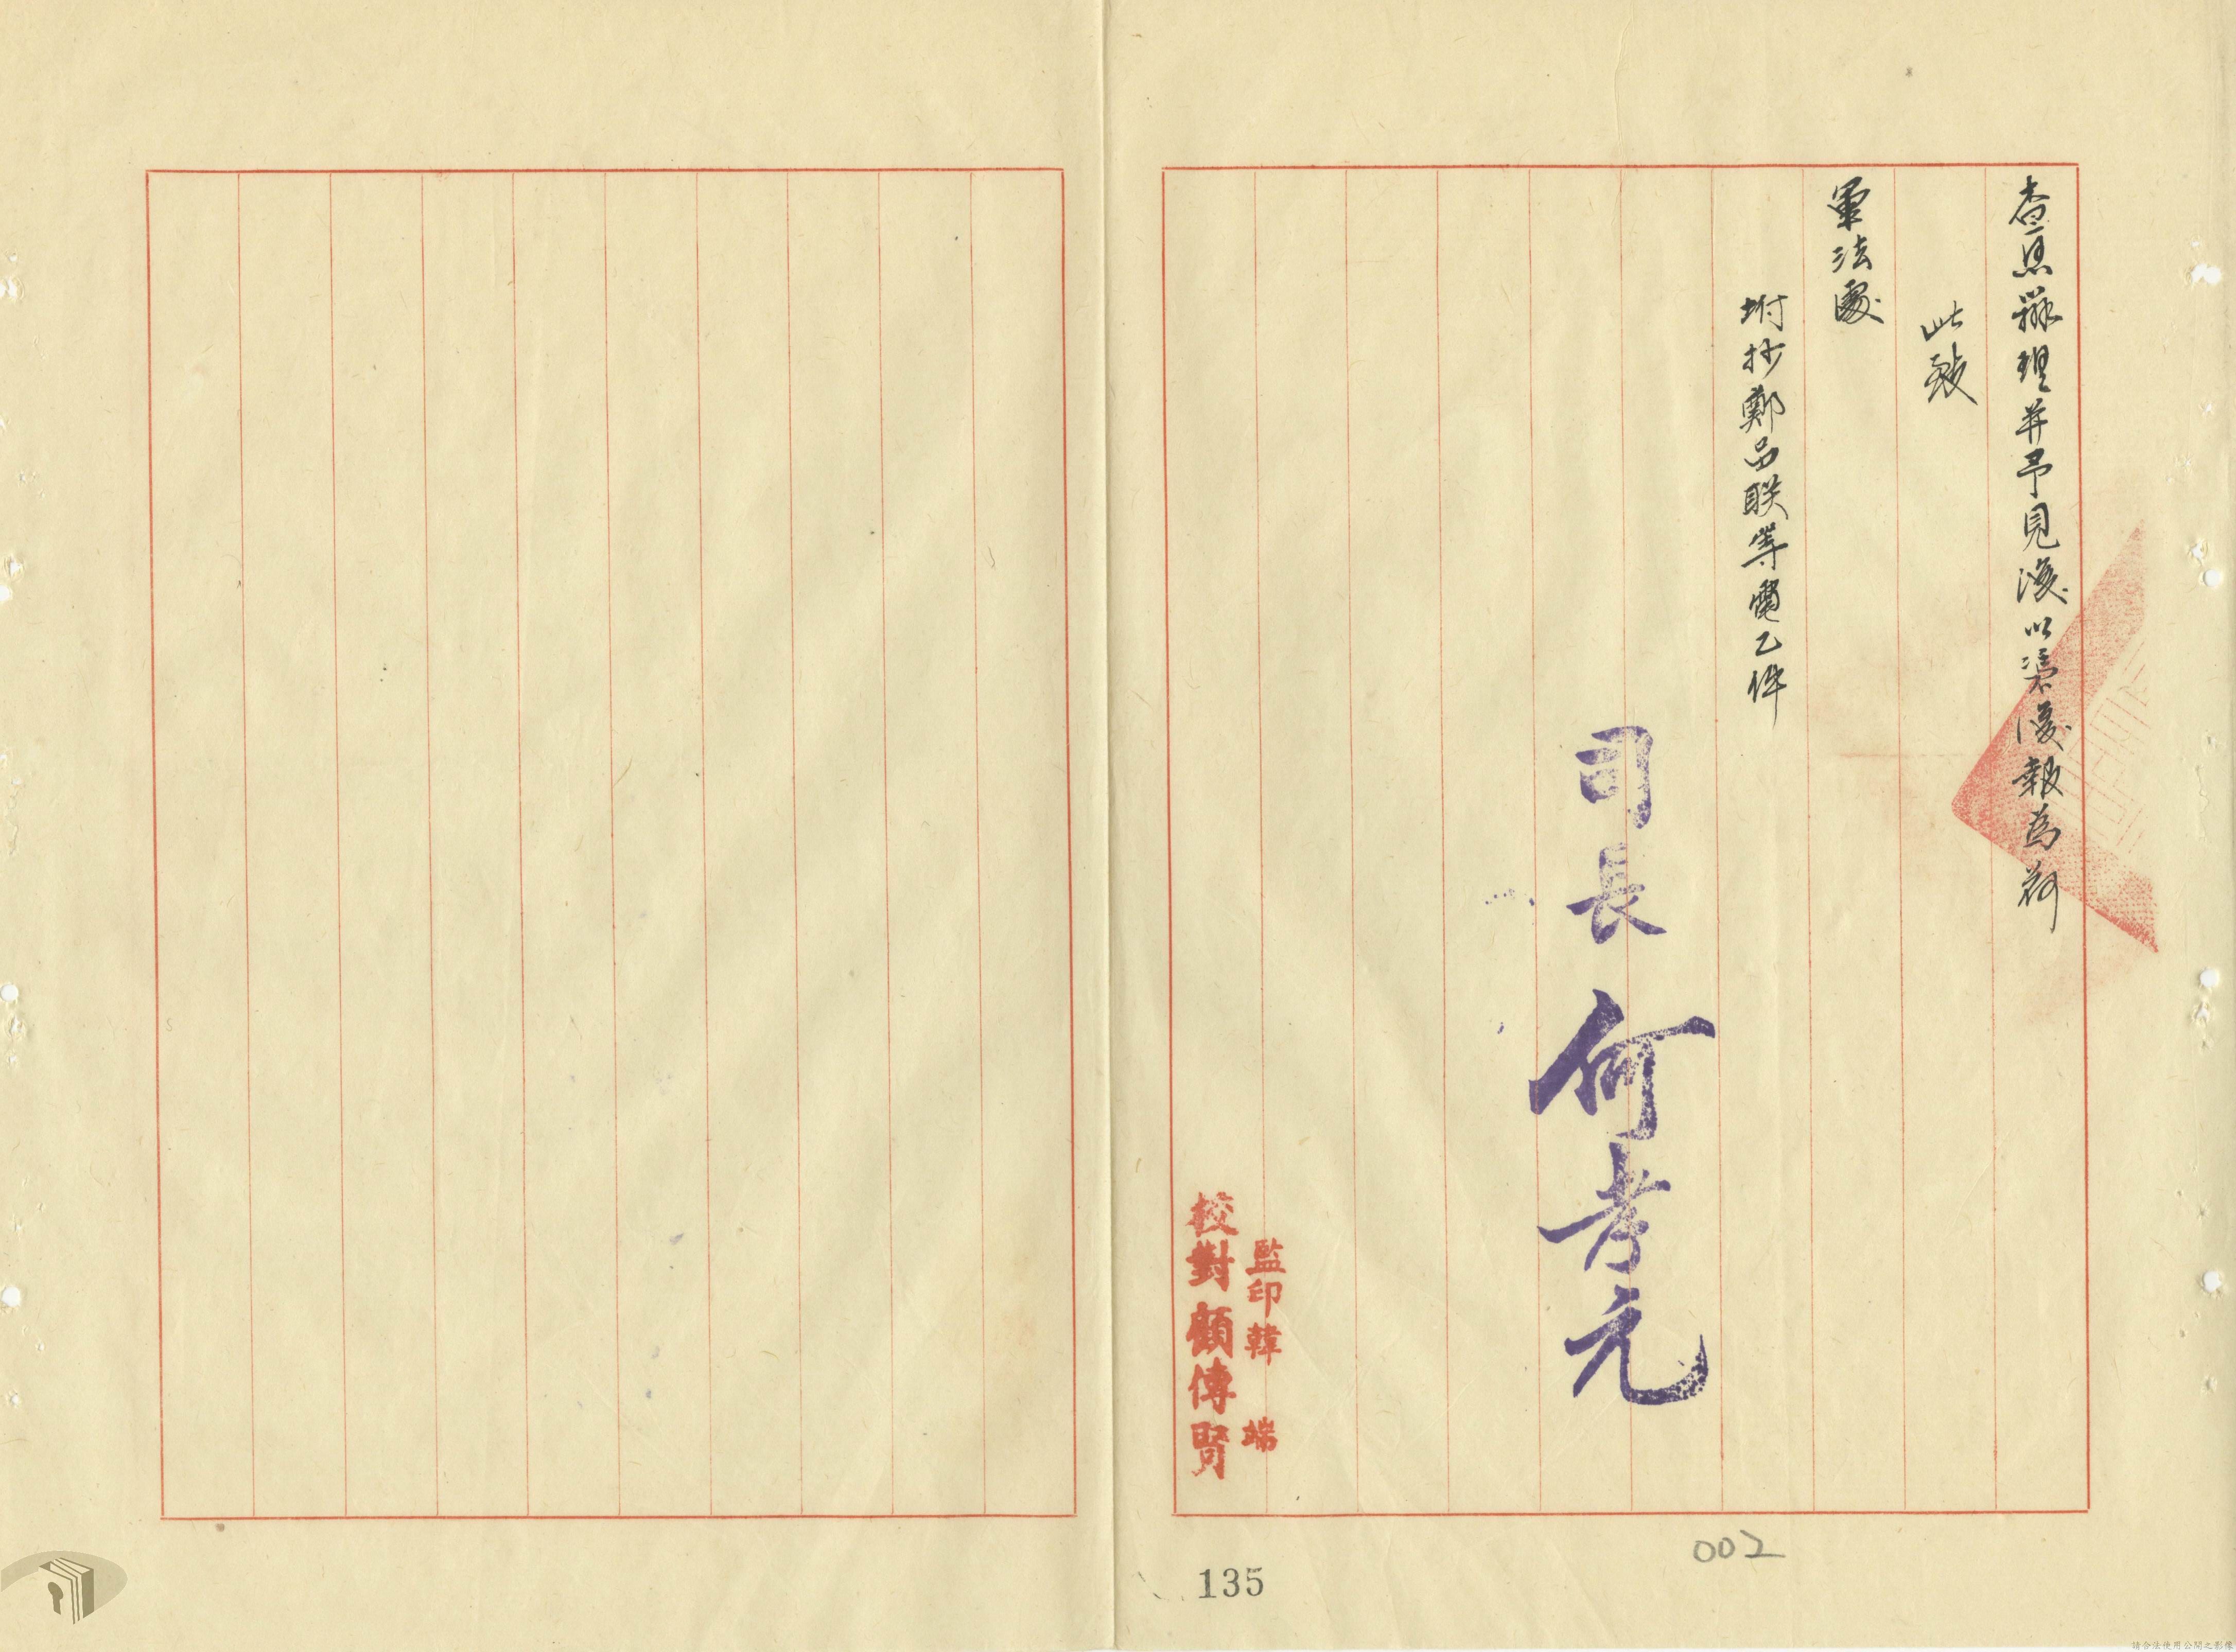 查照辦理并予見復以憑復報為荷
此致
軍法處
坿抄鄭品聯等電乙件
司長何孝元
監印韓端
校對顧傳賢
002
135
請合法使用公開之影像